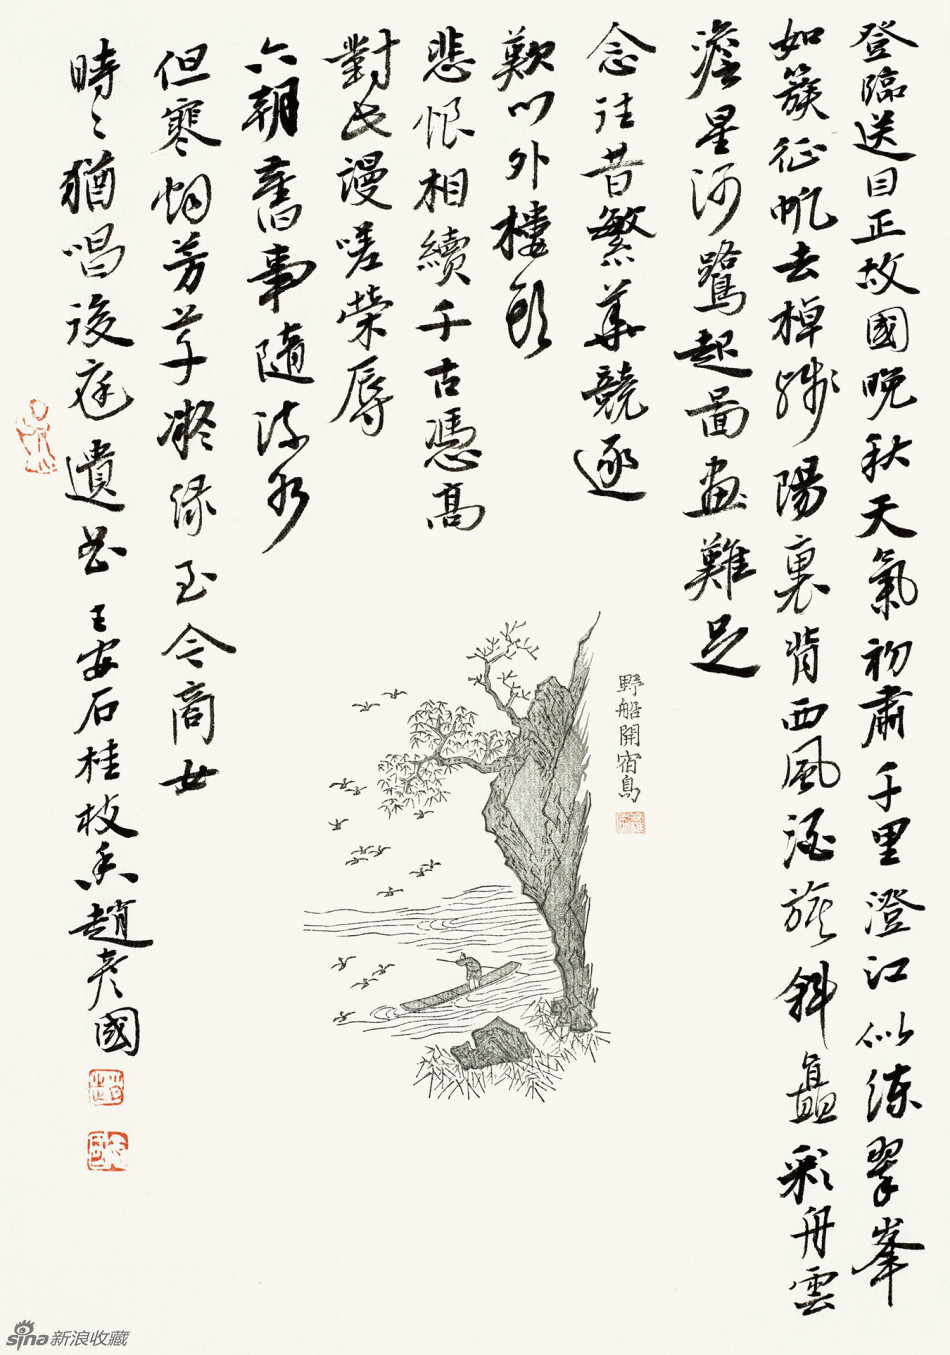 登臨送目正故國晚秋天氣初肅千里澄江似練翠峯
如簇征帆去棹殘陽裏背西風酒旗斜矗彩舟雲
澹星河鷺起啚畫難足
念往昔繁華競逐
歎門外樓頭
悲恨相續千古憑高
對此漫嗟榮辱
六朝舊事隨流水
但寒烟芳草凝綠至今商女
時〻猶唱後庭遺曲 王安石桂枝香趙彥國
野船開宿鳥
sina新浪收藏